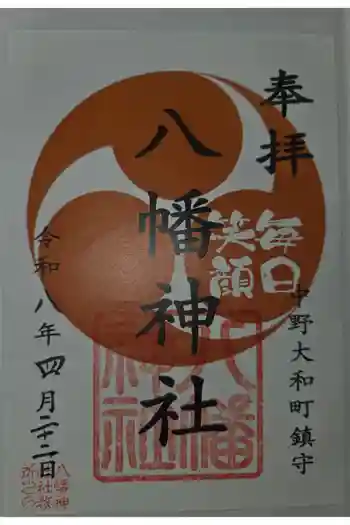 奉拝
中野大和町鎮守
毎日
笑顔
八幡神社
八幡
神社
令和八年四月二十二日